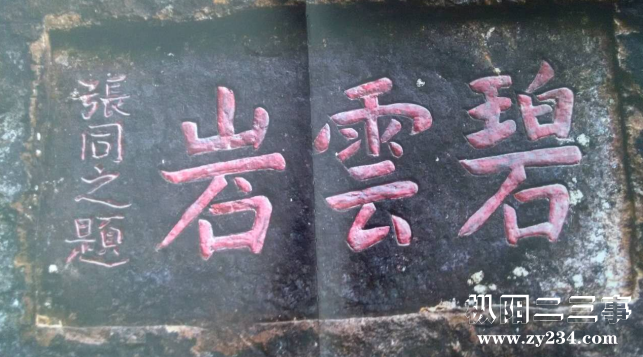 碧雲岩
張同之題
枞阳二三事
www.zy234.com